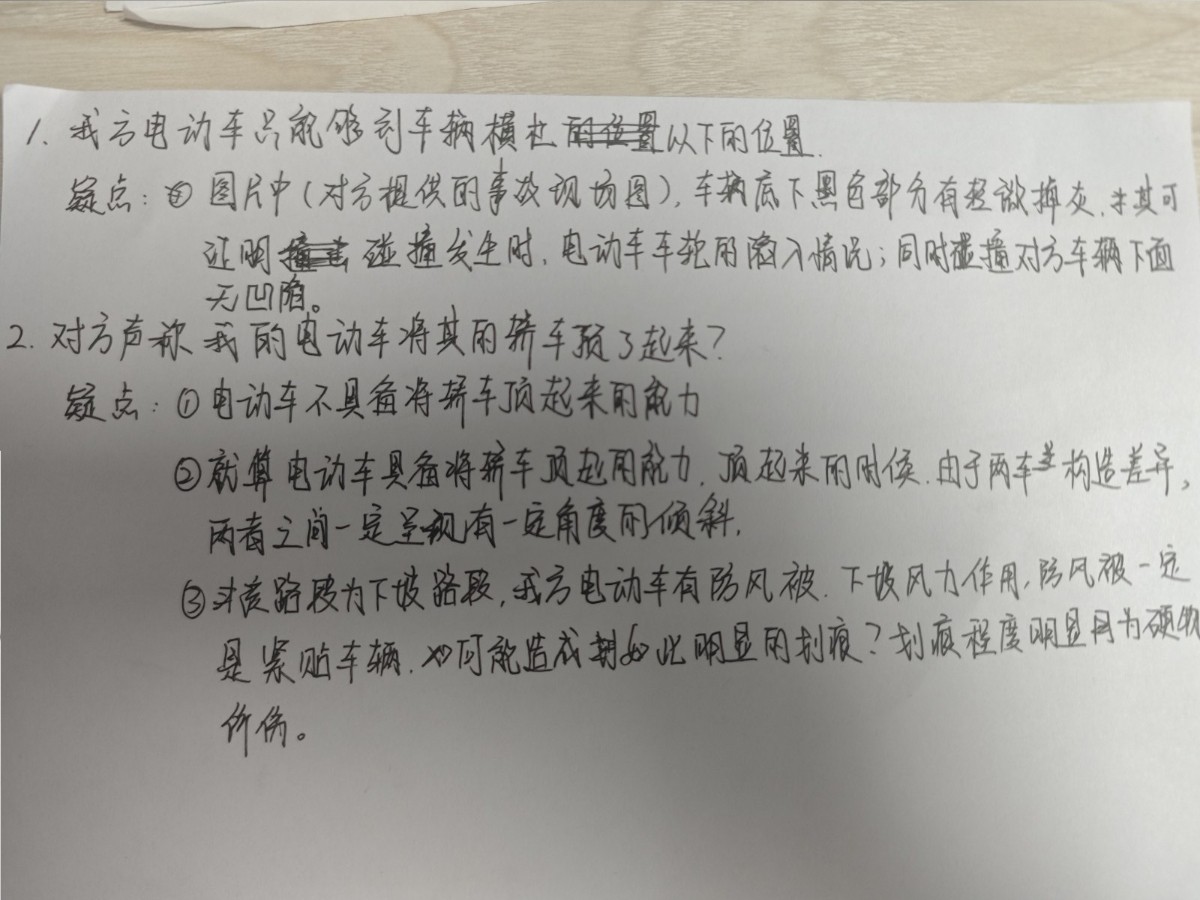 1. 我方电动车只能够到车辆横杠以下的位置.
疑点：① 图片中(对方提供的事故现场图)，车辆底下黑色部分有轻微掉灰.其可
证明 碰撞发生时，电动车车轮的陷入情况；同时碰撞对方车辆下面
无凹陷。
2. 对方声称我的电动车将其的轿车顶了起来？
疑点：①电动车不具备将轿车顶起来的能力
②就算电动车具备将轿车顶起的能力，顶起来的时候.由于两车构造差异，
两者之间一定呈现有一定角度的倾斜.
③该路段为下坡路段，我方电动车有防风被.下坡风力作用，防风被一定
是紧贴车辆.如何能造成如此明显的划痕？划痕程度明显因为硬物
所伤。